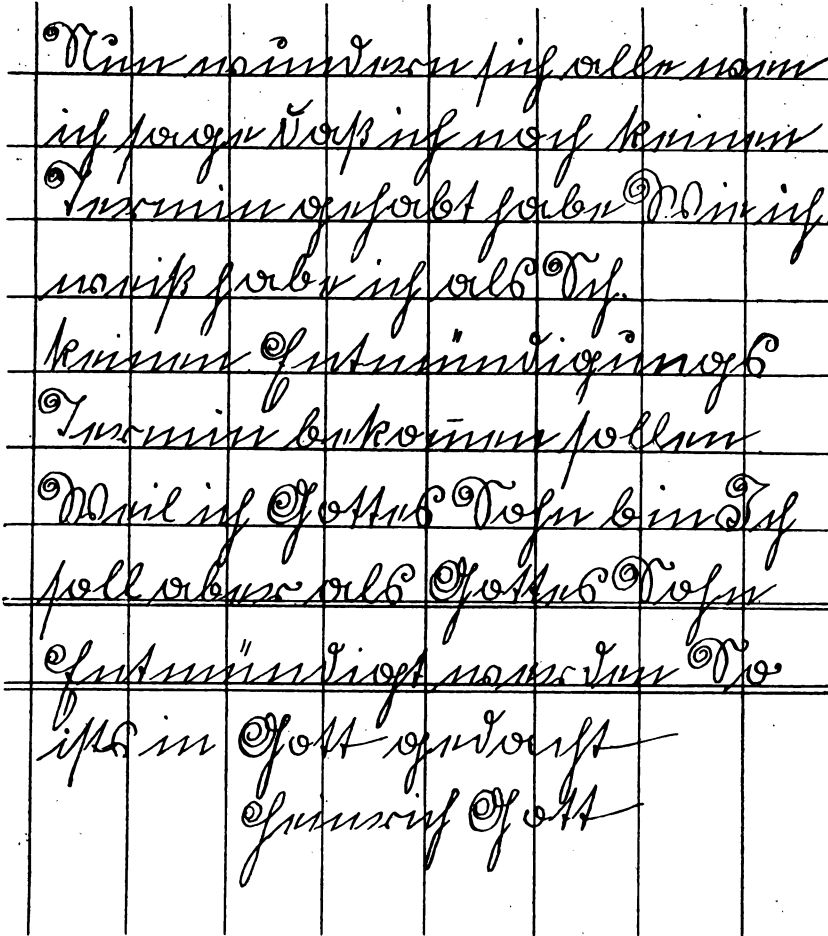 Nun wundern sich alle wen
ich sage daß ich noch keinen
Termin gehabt habe Wie ich
weiß habe ich als Sch.
keinen Entmündigungs
Termin bekom̄en sollen
Weil ich Gottes Sohn bin Ich
soll aber als Gottes Sohn
Entmündigt werden So
ists in Gott gedacht
Heinrich Gott